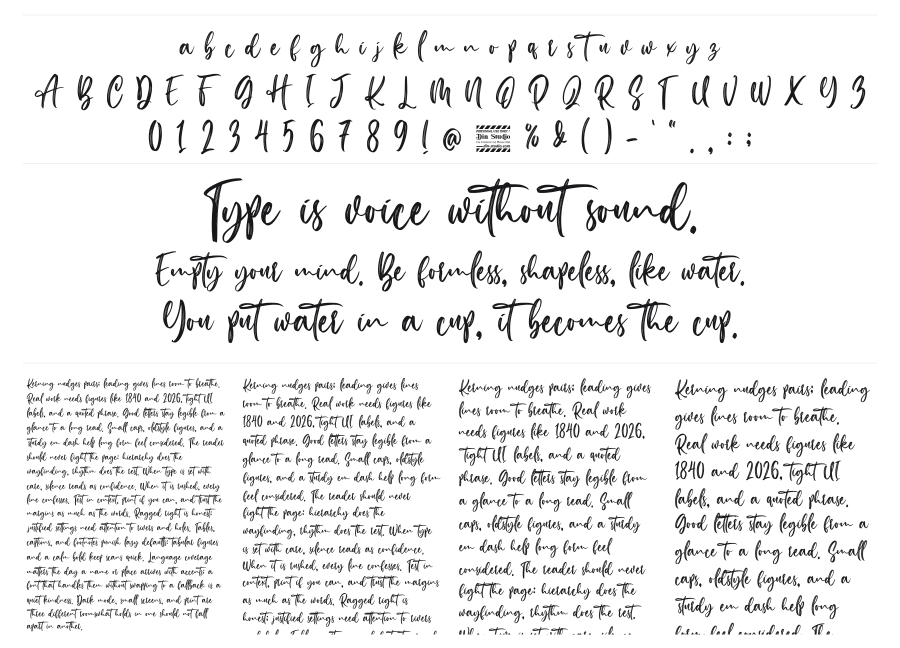 a b c d e f g h i j k l m n o p q r s t u v w x y z
A B C D E F G H I J K L M N O P Q R S T U V W X Y Z
0 1 2 3 4 5 6 7 8 9 ! @ Din Studio % & ( ) - ' " . , : ;
Type is voice without sound.
Empty your mind. Be formless, shapeless, like water.
You put water in a cup, it becomes the cup.
Kerning nudges pairs; leading gives lines room to breathe.
Real work needs figures like 1840 and 2026, tight UI
labels, and a quoted phrase. Good letters stay legible from a
glance to a long read. Small caps, oldstyle figures, and a
sturdy em dash help long form feel considered. The reader
should never fight the page: hierarchy does the
wayfinding, rhythm does the rest. When type is set with
care, silence reads as confidence. When it is rushed, every
line confesses. Test in context, print if you can, and trust the
margins as much as the words. Ragged right is honest;
justified settings need attention to rivers and holes. Tables,
captions, and footnotes punish lazy defaults; tabular figures
and a calm bold keep scans quick. Language coverage
matters the day a name or place arrives with accents; a
font that handles them without wrapping to a fallback is a
quiet kindness. Dark mode, small screens, and print are
three different rooms; what holds in one should not fall
apart in another.
Kerning nudges pairs; leading gives lines
room to breathe. Real work needs figures like
1840 and 2026, tight UI labels, and a
quoted phrase. Good letters stay legible from a
glance to a long read. Small caps, oldstyle
figures, and a sturdy em dash help long form
feel considered. The reader should never
fight the page: hierarchy does the
wayfinding, rhythm does the rest. When type
is set with care, silence reads as confidence.
When it is rushed, every line confesses. Test in
context, print if you can, and trust the margins
as much as the words. Ragged right is
honest; justified settings need attention to rivers
Kerning nudges pairs; leading gives
lines room to breathe. Real work
needs figures like 1840 and 2026,
tight UI labels, and a quoted
phrase. Good letters stay legible from
a glance to a long read. Small
caps, oldstyle figures, and a sturdy
em dash help long form feel
considered. The reader should never
fight the page: hierarchy does the
wayfinding, rhythm does the rest.
Kerning nudges pairs; leading
gives lines room to breathe.
Real work needs figures like
1840 and 2026, tight UI
labels, and a quoted phrase.
Good letters stay legible from a
glance to a long read. Small
caps, oldstyle figures, and a
sturdy em dash help long
form feel considered. The